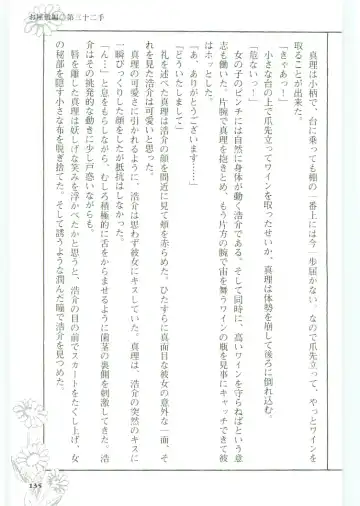 お屋敷編◎第三十二手
真理は小柄で、台に乗っても棚の一番上には今一歩届かない。なので爪先立って、やっとワインを
取ることが出来た。
「きゃあっ！」
小さな台の上で爪先立ってワインを取ったせいか、真理は体勢を崩して後ろに倒れ込む。
「危ないっ！」
女の子のピンチには自然に身体が動く浩介である。そして同時に、高いワインを守らねばという意
志も働いた。片腕で真理を抱きとめ、もう片方の腕で宙を舞うワインの瓶を見事にキャッチできて彼
はホッとした。
「あ、ありがとうございます……」
「どういたしまして」
礼を述べた真理は浩介の顔を間近に見て頬を赤らめた。ひたすらに真面目な彼女の意外な一面、そ
れを見た浩介は可愛いと思った。
真理の可愛さに引かれるように、浩介は思わず彼女にキスしていた。真理は、浩介の突然のキスに
一瞬びっくりした顔をしたが抵抗はしなかった。
「ん…」と息をもらしながら、むしろ積極的に舌をからませるように歯茎の裏側を刺激してきた。浩
介はその挑発的な動きに少し戸惑いながらも。
唇を離した真理は妖しげな笑みを浮かべたかと思うと、浩介の目の前でスカートをたくし上げ、女
の秘部を隠す小さな布を脱ぎ捨てた。そして誘うような潤んだ瞳で浩介を見つめた。
155